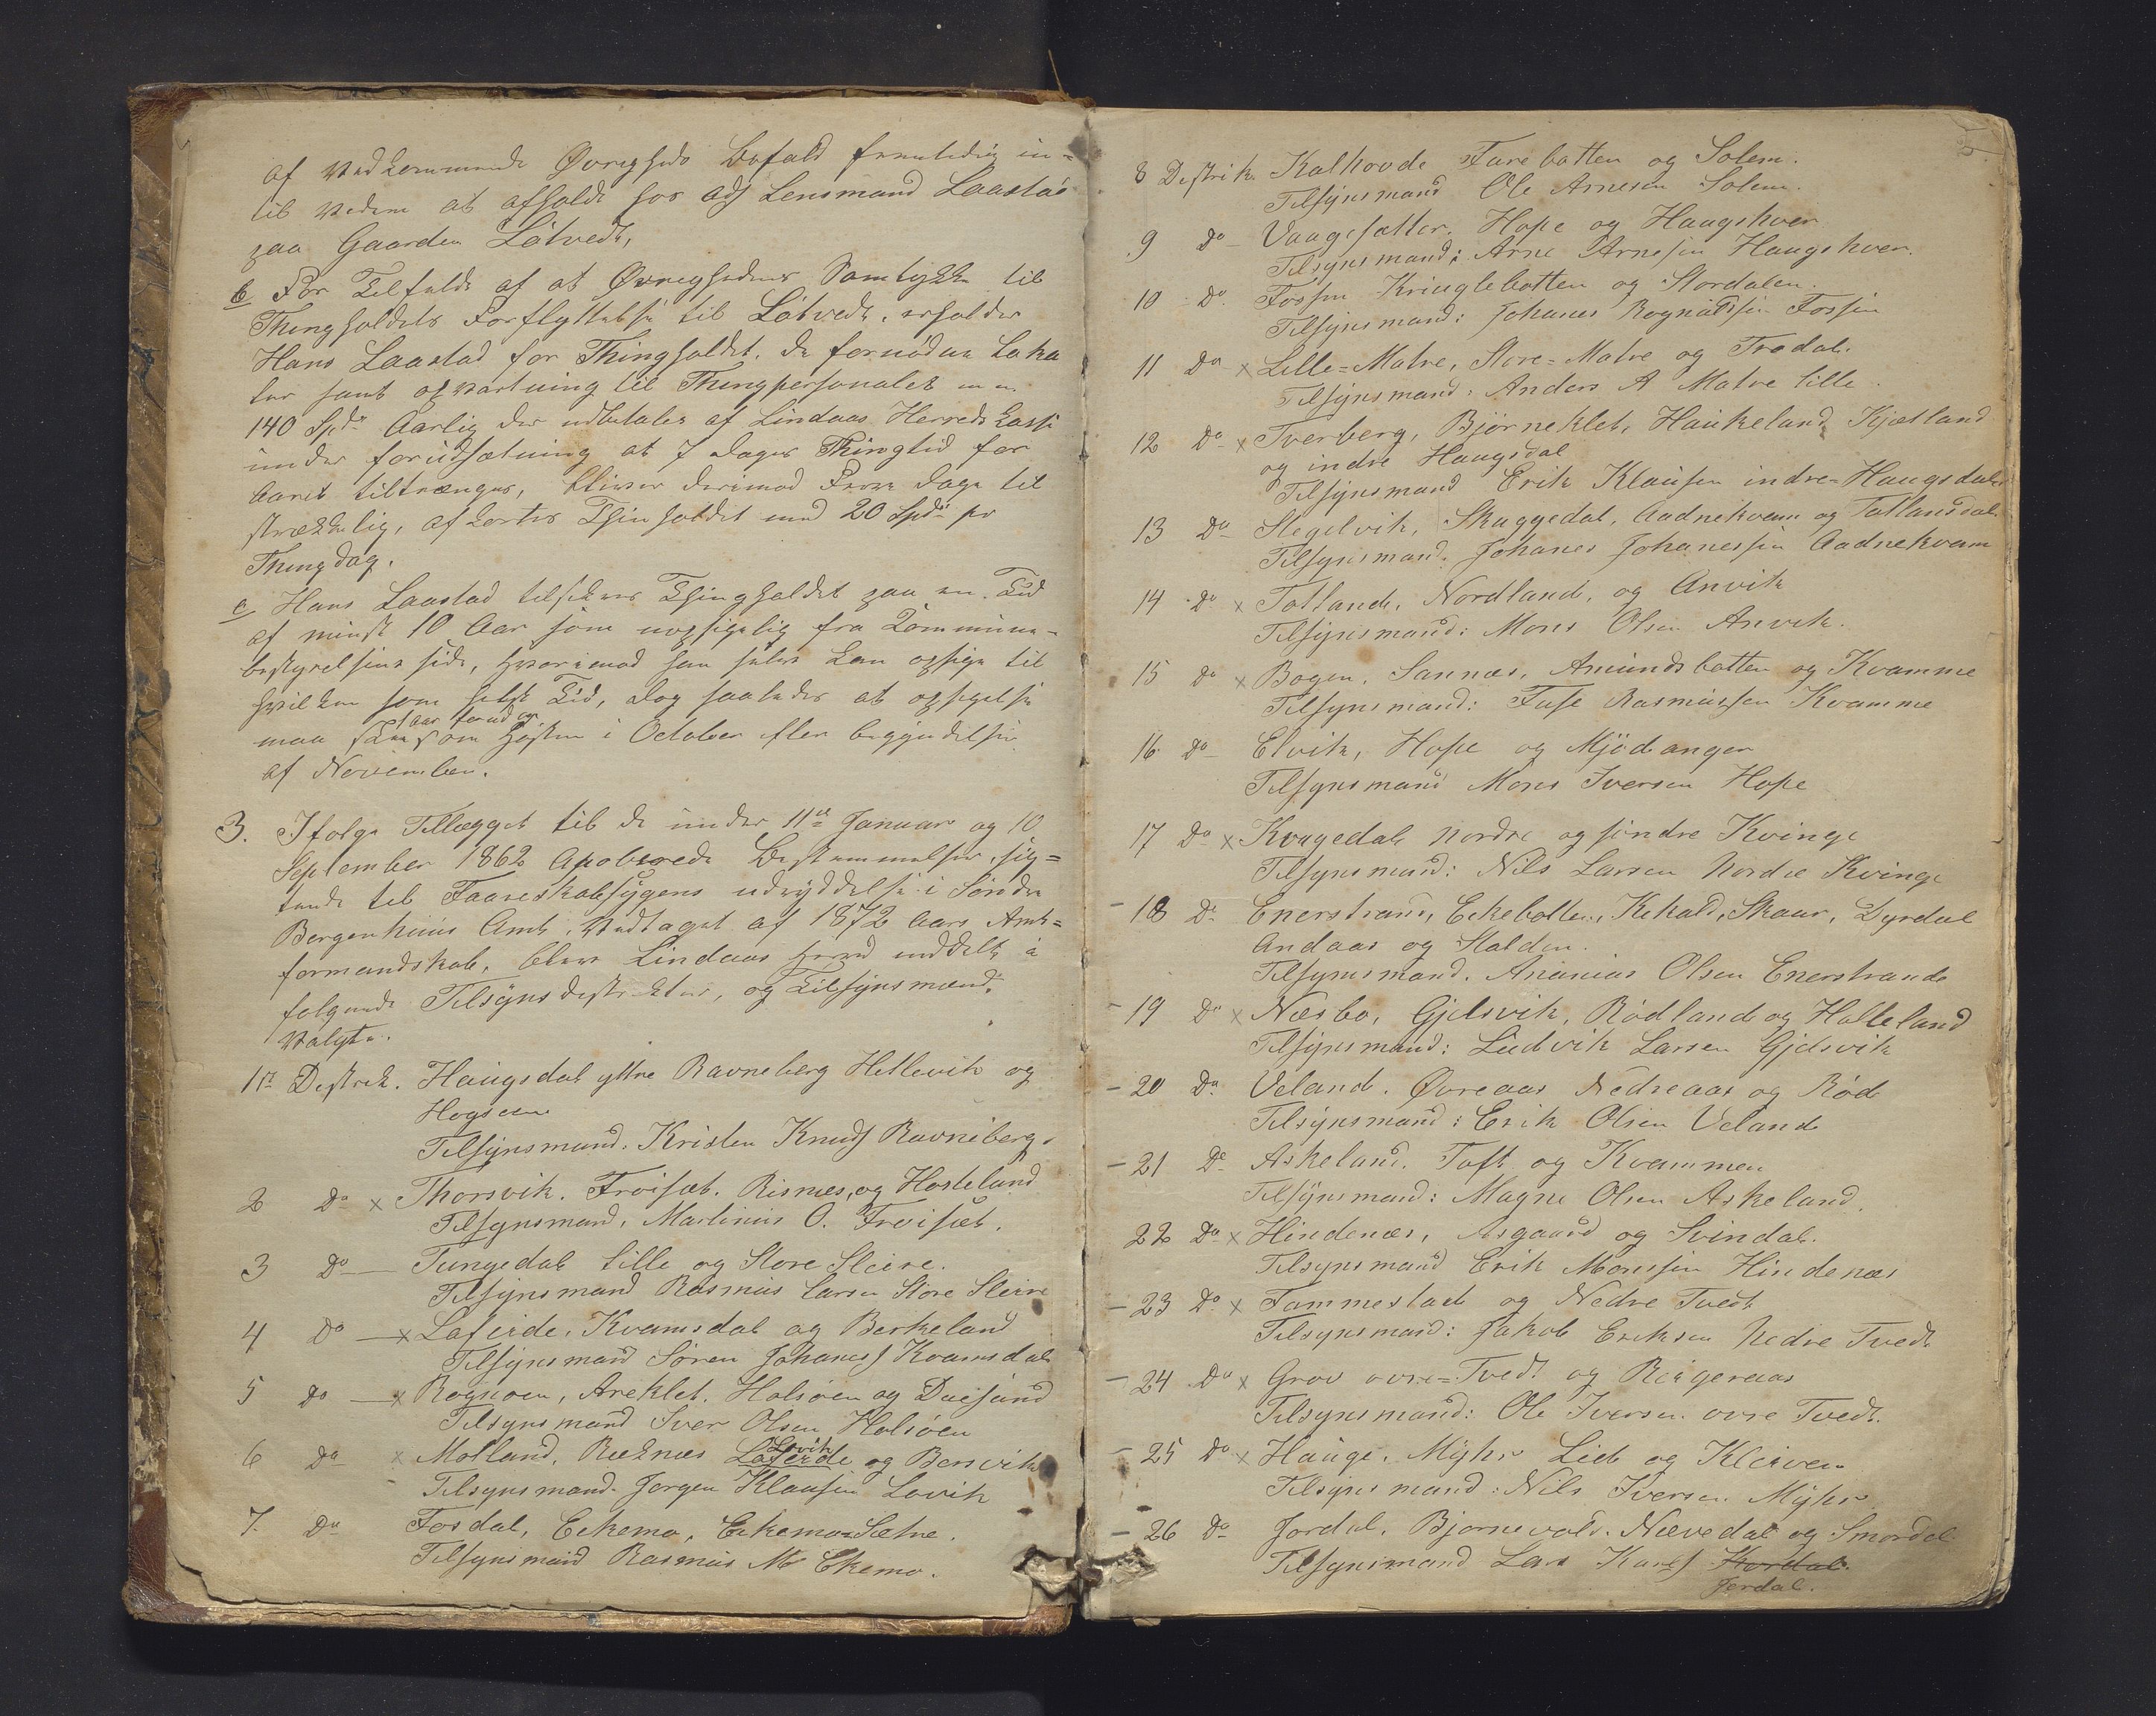 af Vedkommende Øvrigheds Befald fremtidig in-
til Videre at afholde hos Adj Lensmand Laastad
paa Gaarden Lötvedt,
b For Tilfelde af at Øvrighedens Samtykke til
Thingholdets Forflyttelse til Lötvedt, erholder
Hans Laastad for Thingholdet, de fornödne Loka
ler samt opvartning til Thingpersonalet m m
140 Spd Aarlig der udbetales af Lindaas Herredskasse
under forudsætning at 7 dages Thingtid for
Aaret tiltrænges, bliver derimod Færre dage til
strækkelig, afkortes Thingholdet med 20 Spd pr
Thingdag.
c Hans Laastad tilsikres Thingholdet paa en Tid
af minst 10 Aar som uopsigelig fra Kommune-
bestyrelsens side, hvorimod han selv kan opsige til
hvilken som helst Tid, dog saaledes at opsigelse
1 aar forud og
maa ske om Hösten i October eller begyndelsen
af November.
3. Ifolge Tillægget til de under 11te Januar og 10
September 1862 Apoberede Bestemmelser, sig-
tende til Faareskabsygens udryddelse i Söndre
Bergenhuus Amt, Vedtaget af 1872 Aars Amts-
formandskab, blev Lindaas Herred inddelt i
folgende Tilsynsdistrikter, og Tilsynsmænd
Valgte.
1ste Distrik. Haugsdal yttre Ravneberg Hellevik og
Hogseu
Tilsynsmand. Kristen Knuds Ravneberg.
2 Do x Thorsvik. Froiset. Risnes, og Hosteland
Tilsynsmand, Martinus O. Froiset.
3 Do Tungedal lille og Store Sleire.
Tilsynsmand Rasmus Larsen Store Sleire
4 Do x Laferde, Kvamsdal og Berkeland
Tilsynsmand Sören Johaness Kvamsdal
5 Do x Rognoen, Areklet, Holsöen og Duesund
Tilsynsmand Iver Olsen Holsöen
Lovik
6 Do x Molland, Reknes Laferde og Bersvik
Tilsynsmand Jorgen Klausen Lovik
7. Do Fosdal, Eekemo, Eekemo Sætre.
Tilsynsmand Rasmus M Ekemo.
8 Distrik Kalhovde Farebotten og Solem.
Tilsynsmand Ole Arnesen Solem.
9 Do Vaagesætter. Hope og Haugshver
Tilsynsmand: Arne Arnesen Haugshver.
10 Do. Fossen Kringlebotten og Stordalen.
Tilsynsmand: Johanes Rognaldsen Fossen
11 Do x Lille-Matre, Store-Matre og Trodal.
Tilsynsmand: Anders A Matre lille.
12 Do x Tverberg, Björneklet, Haukeland Kjetland
og indre Haugsdal
Tilsynsmand Erik Klausen indre-Haugsdal
13 Do Slegelvik, Skuggedal, Aadnekvam og Totlandsdal
Tilsynsmand. Johanes Johanessen Aadnekvam
14 Do x Totland, Nordland, og Anvik
Tilsynsmand: Mons Olsen Anvik.
15 Do x Bogen, Sannæs, Amundsbotten og Kvamme
Tilsynsmand: Fuse Rasmussen Kvamme
16 Do Elvik, Hope og Mjödanger
Tilsynsmand Mons Iversen Hope
17 Do x Kvagedal nordre og söndre Kvinge
Tilsynsmand: Nils Larsen Nordre Kvinge
18 Do Enerstrand, Eekebotten, Kekald, Skaar, Dyrdal
Andaas og Stalden.
Tilsynsmand. Ananias Olsen Enerstrand
19 Do x Næsbo, Gjelsvik, Rödland og Halleland
Tilsynsmand: Ludvik Larsen Gjelsvik
20 Do Veland. Øvreaas Nedreaas og Röd
Tilsynsmand: Erik Olsen Veland
21 Do Askeland. Toft og Kvammen
Tilsynsmand: Magne Olsen Askeland.
22 Do x Hindenæs, Asgaard og Svindal.
Tilsynsmand Erik Monssen Hindenæs
23 Do x Fammestad og Nedre Tvedt
Tilsynsmand: Jakob Eriksen Nedre Tvedt
24 Do x Grov ovre-Tvedt og Riegeraas
Tilsynsmand: Ole Iversen ovre Tvedt.
25 Do x Hauge. Myhr Lid og Kleiven
Tilsynsmand: Nils Iversen Myhr
26 Do Jordal. Bjornevold. Nævedal og Smordal
Tilsynsmand Lars
Jordal.